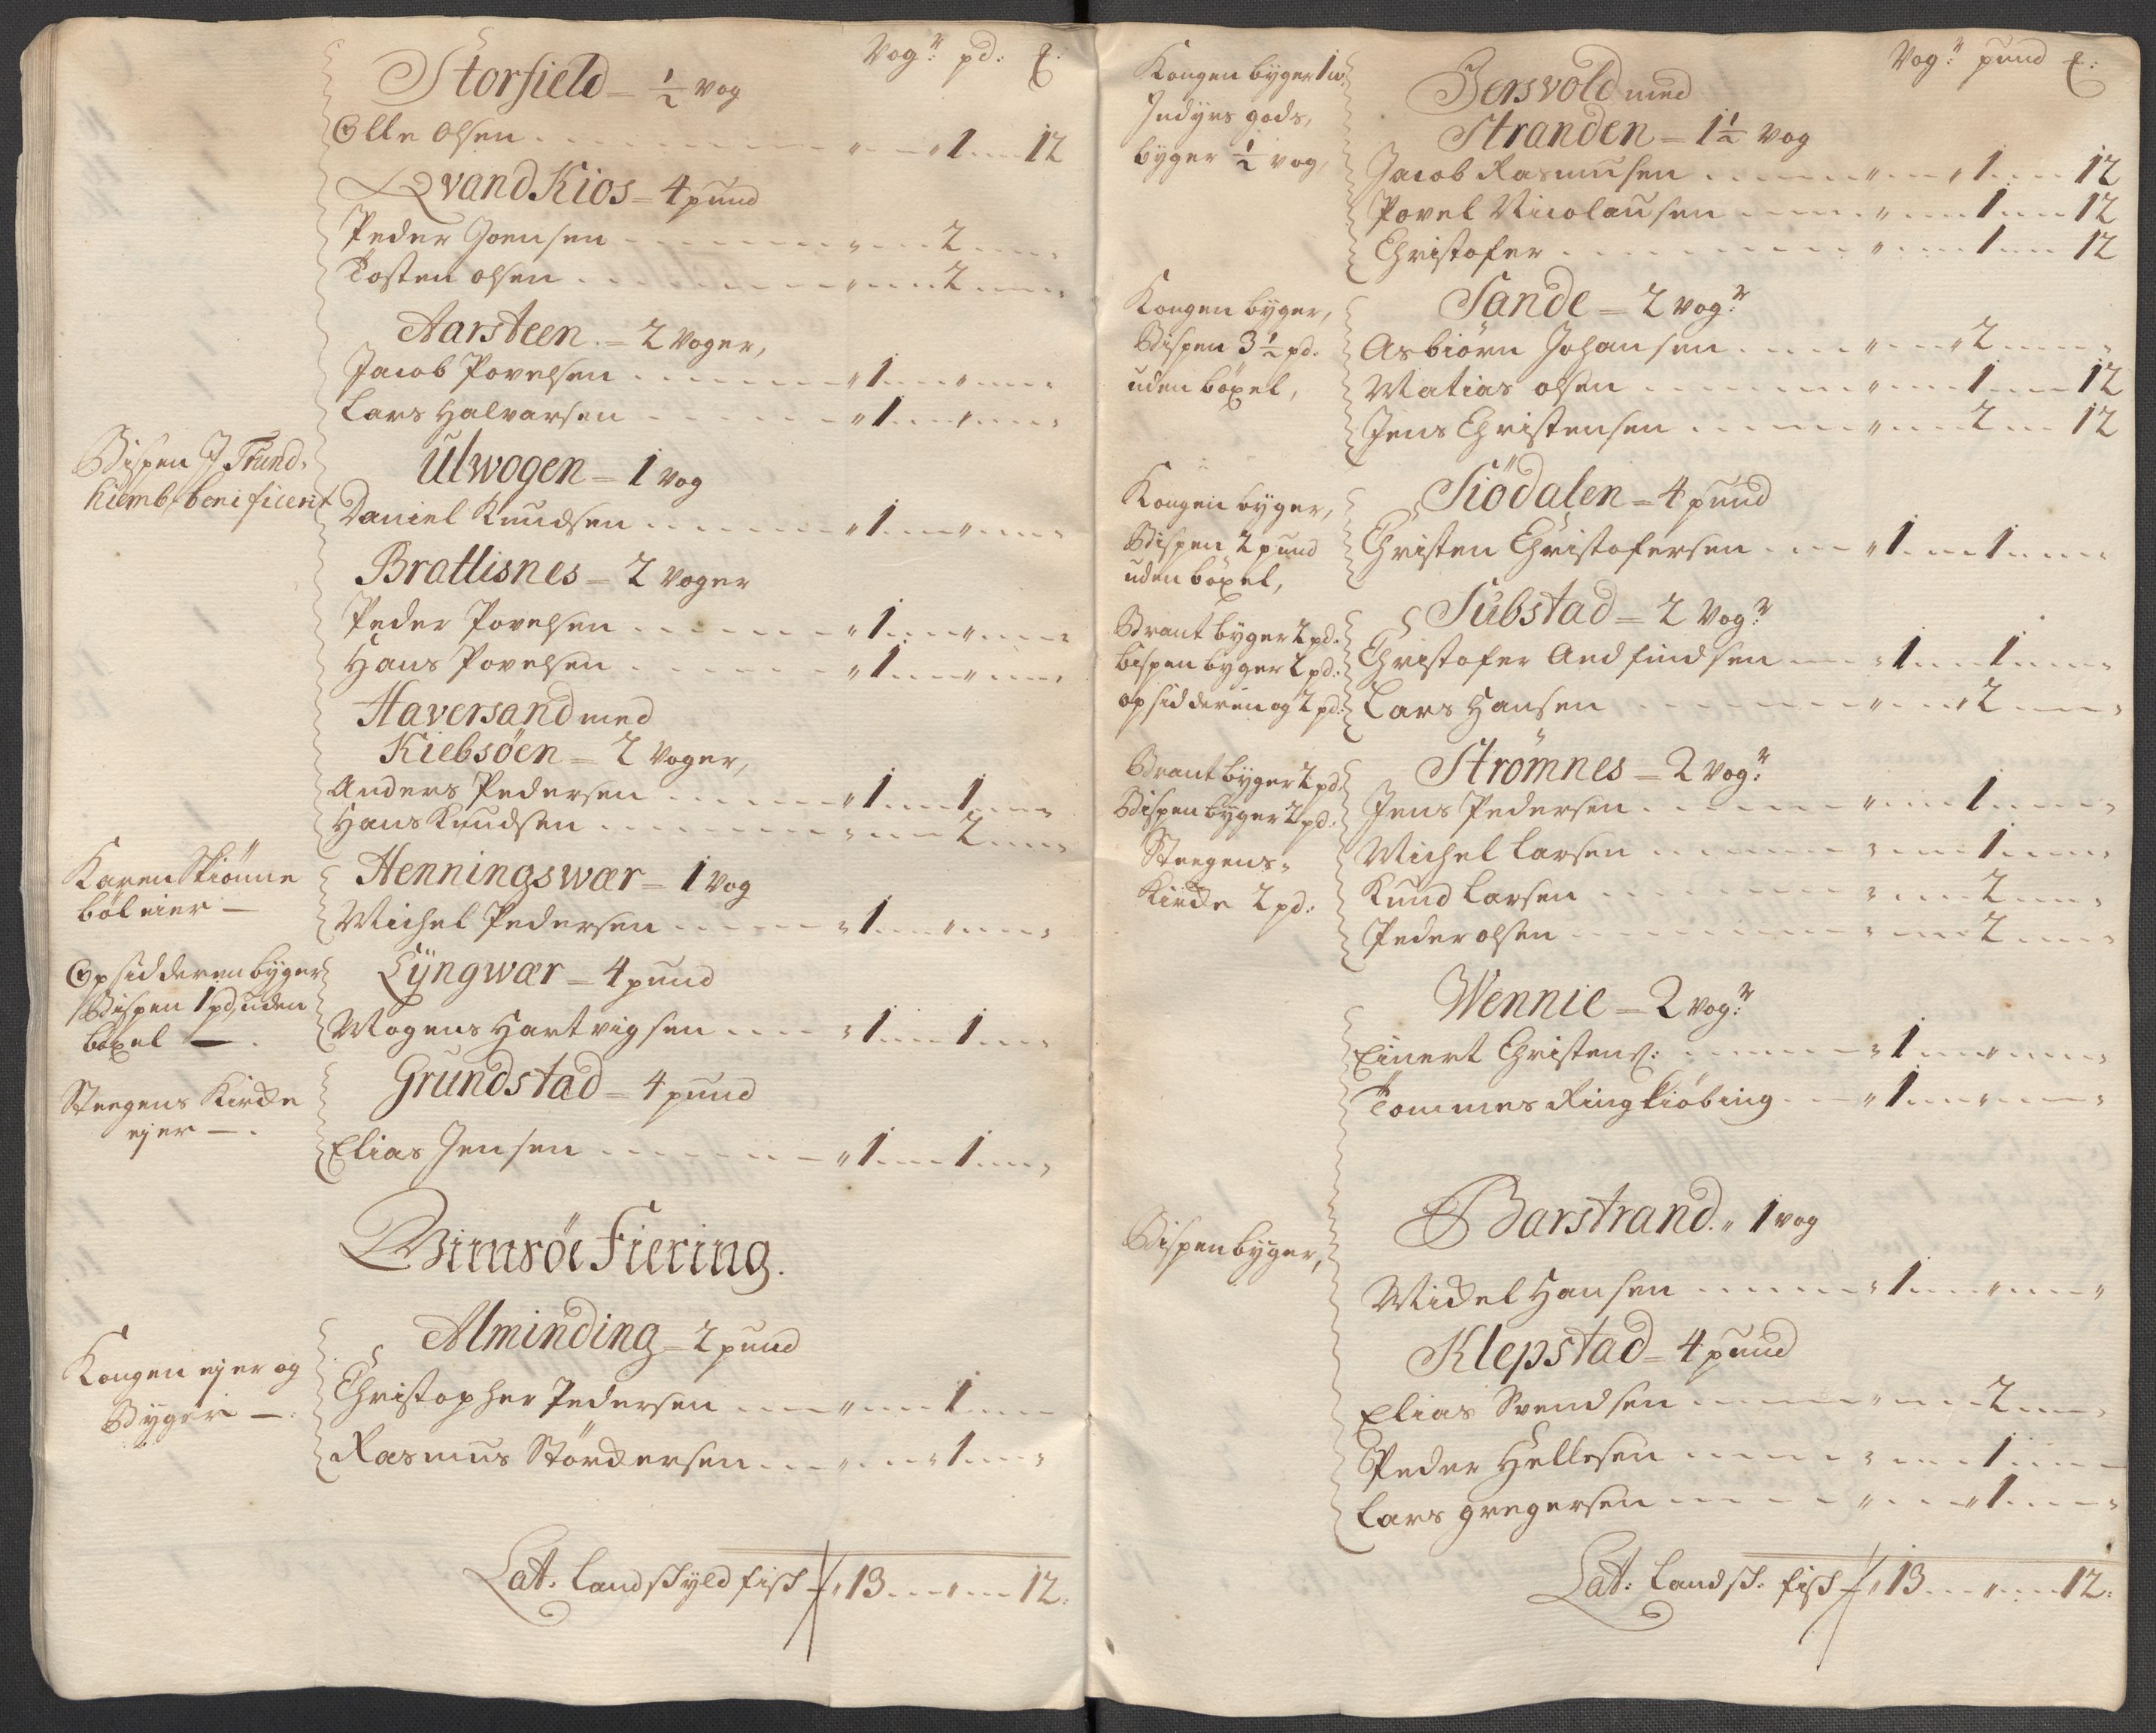 Vogr: pd: ℔:
Storfield = ½ vog
Olle Olsen . . . . „ — „ 1 . . . 12
Qvand Kios = 4 pund
Peder Joensen . . . . „ . . . 2 . . . „
Tosten olsen . . . . „ . . . 2 . . . „
Aarsteen . = 2 Voger,
Jacob Povelsen . . . . „ 1 . . . „ . . . „
Lars Halvarsen . . . . „ 1 . . . „ . . . „
Bispen J Trund-
hiemb benificerit
Ulwogen = 1 vog
Daniel Knudsen . . . . „ 1 . . . „ . . . „
Brattisnes = 2 Voger
Peder Povelsen . . . . „ 1 . . . „ . . . „
Hans Povelsen . . . . „ 1 . . . „ . . . „
Haversand med
Kiebsöen = 2 Voger,
Anders Pedersen . . . . „ 1 . . . 1 . . . „
Hans Knudsen . . . . „ . . . 2 . . . „
Karen Skiönne
böl eier —
Henningswær = 1 Vog
Michel Pedersen . . . . „ 1 . . . „ . . . „
Opsidderen byger
Bispen 1 pd uden
böxel — .
Lyngwær = 4 pund
Mogens Hartvigsen . . . . „ 1 . . . 1 . . . „
Steegens Kircke
ejer — .
Grundstad = 4 pund
Elias Jensen . . . . „ 1 . . . 1 . . . „
Gimsöe Fiering.
Kongen ejer og
Byger — .
Alminding = 2 pund
Christopher Pedersen . . . . „ . . . 1 . . .
Rasmus Störckersen . . . . „ . . . „ 1 . . . „
Lat. Landskyld fisk — „ 13 . . . „ . . . 12.
Vogr: pund ℔:
Kongen byger 1 w
Indyrs gods,
byger ½ vog,
Jersvold med
Stranden = 1½ vog
Jacob Rasmusen . . . . „ . . . „ 1 . . . 12
Povel Nicolausen . . . . „ . . . 1 . . . 12
Christofer . . . . „ . . . 1 . . . 12
Kongen byger,
Bispen 3½ pd.
uden böxel,
Sande = 2 vogr:
Asbiörn Johansen . . . . „ . . . „ 2 . . . „
Matias olsen . . . . „ . . . 1 . . . 12
Jens Christensen . . . . „ . . . 2 . . . 12
Kongen byger,
Bispen 2 pund
uden böxel,
Siödalen = 4 pund
Christen Christofersen . . . . „ 1 . . . 1 . . . „
Brant byger 2 pd.
bispen byger 2 pd.
opsidderen og 2 pd.
Substad = 2 Vogr:
Christofer Andfindsen . . . . „ 1 . . . 1 . . . „
Lars Hansen . . . . „ . . . „ 2 . . . „
Brant byger 2 pd.
Bispen byger 2 pd.
Steegens-
Kircke 2 pd:
Strömnes = 2 Vogr:
Jens Pedersen . . . . „ . . . 1 . . . „
Michel Larsen . . . . „ . . . 1 . . . „
Knud Larsen . . . . „ . . . 2 . . . „
Peder olsen . . . . „ . . . 2 . . . „
Wennie = 2 vogr:
Einert Christens: . . . . „ 1 . . . „ . . . „
Tommes Ringkiöbing . . . . „ 1 . . . „ . . . „
Bispen byger,
Barstrand. „ 1 vog
Mickel Hansen . . . . „ 1 . . . „ . . . „
Klepstad = 4 pund
Elias Svendsen . . . . „ . . . 2 . . . „
Peder Hellesen . . . . „ . . . 1 . . .
Lars gregersen . . . . „ . . . „ 1 . . . „
Lat: Landsk: fisk — „ 13 . . . „ . . . 12: